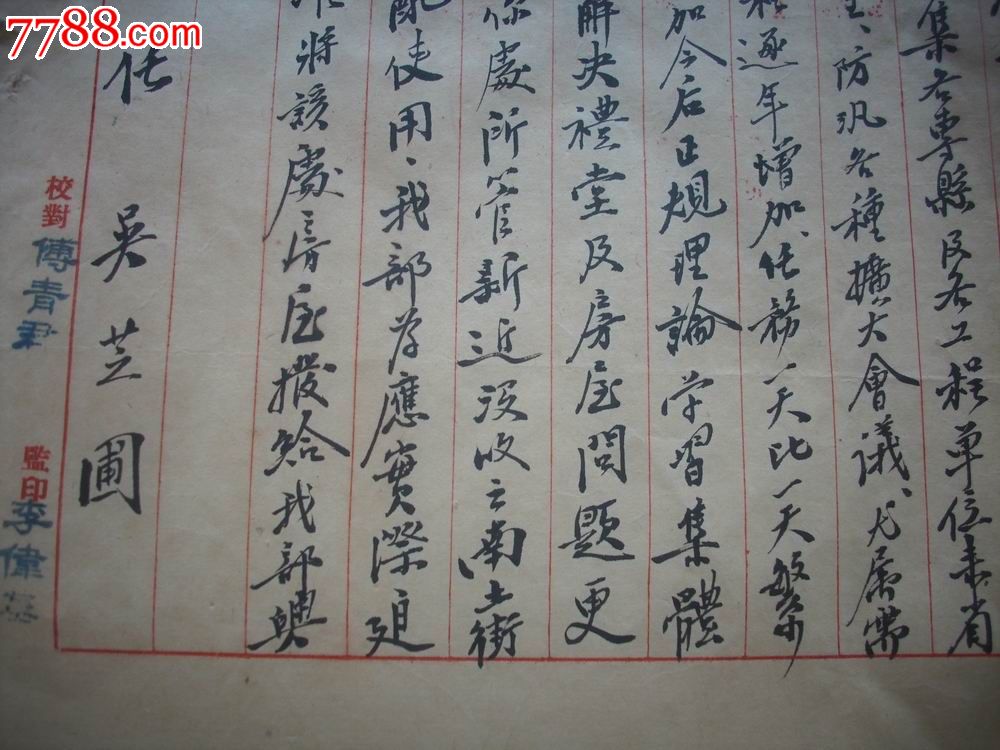 集各专縣及各工程单位来省
防汛各種擴大會議、尤属需
逐年增加、任務一天比一天繁
加今后正規理論学習集體
解决禮堂及房屋問題更
你處所管新近没收云南土街
配使用、我部为應實際迫
将該處房屋撥給我部與
任 吳芝圃
校對 傅青君
監印 李偉
7788.com